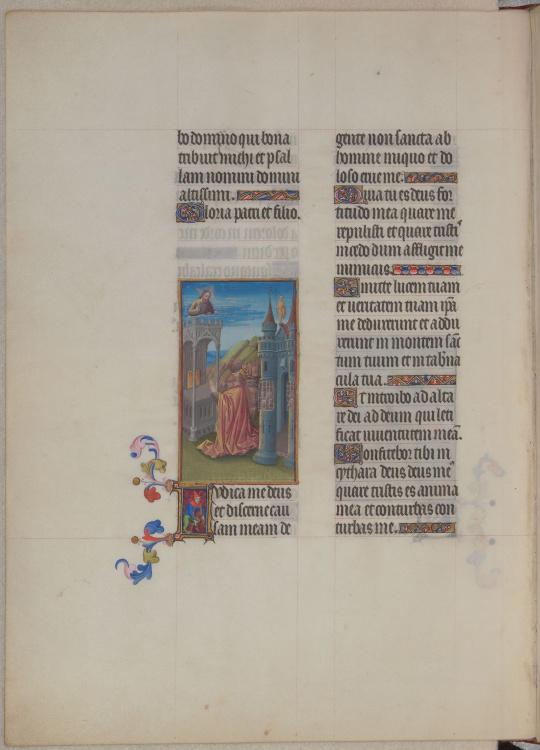 bo domino qui bona
tribuit michi et psal
lam nomini domini
altissimi.
Gloria patri et filio.
Iudica me deus
et discerne cau
sam meam de
gente non sancta ab
homine iniquo et do
loso erue me.
Quia tu es deus for
titudo mea quare me
repulisti et quare tristis
incedo dum affligit me
inimicus.
Emitte lucem tuam
et veritatem tuam ipa
me deduxerunt et addux
erunt in montem sanc
tum tuum et in taberna
cula tua.
Et introibo ad alta
re dei ad deum qui leti
ficat iuventutem meam.
Confitebor tibi in
cythara deus deus me
quare tristis es anima
mea et conturbas con
turbas me.